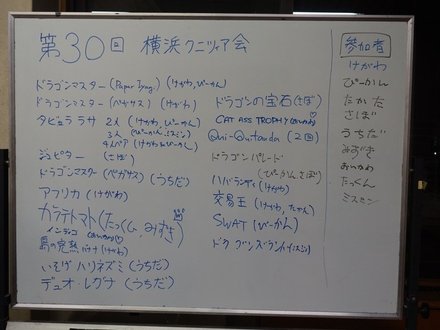 第30回 横浜クニツィア会
ドラゴンマスター (Paper Dragon) (けがわ, ぴーかん)
ドラゴンマスター (ペガサス) (けがわ)
タビュラ ラサ 2人 (けがわ, ぴーかん)
3人 (ぴーかん, ミスミン)
4人ペア (けがわ
ジュピター (さぼ)
ドラゴンマスター (ペガサス) (うちだ)
アフリカ (けがわ)
カラテトマト (たっくん, みずき)
インディゴ
島の完熟バナナ (けがわ)
いそげハリネズミ (うちだ)
デュオ レグナ (うちだ)
ドラゴンの宝石 (さぼ)
CAT ASS TROPHY
Qui-Quitanda (2回)
ドラゴンパレード
(ぴーかん, さぼ)
ババランディ (けがわ)
交易王 (けがわ, たかだ)
SWAT (ぴーかん)
参加者
けがわ
ぴーかん
たかだ
さぼ
うちだ
みずき
おいかわ
たっくん
ミスミン